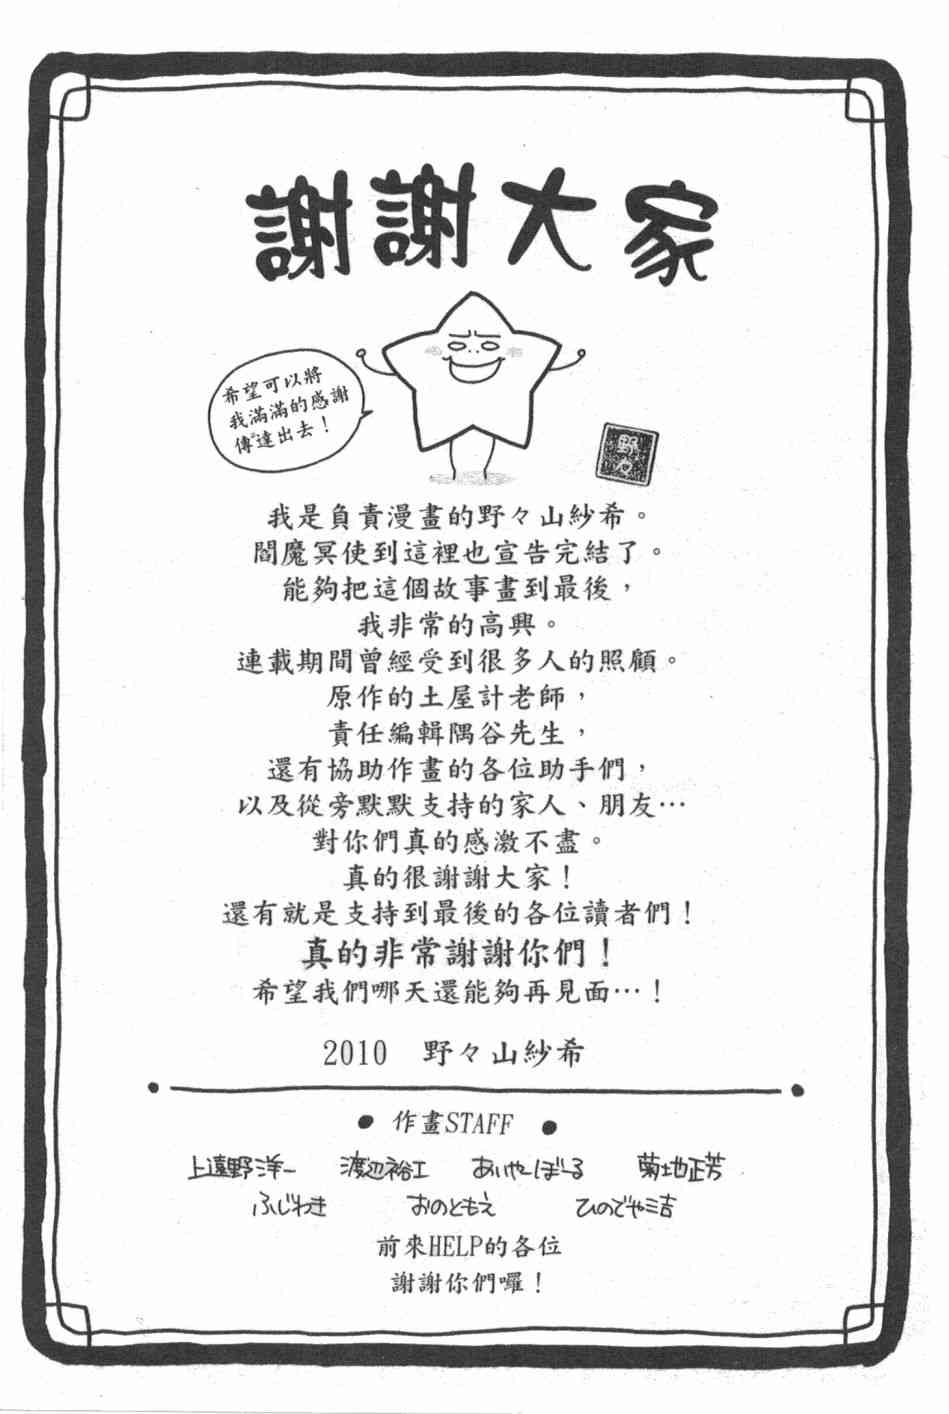 謝謝大家
希望可以將
我滿滿的感謝
傳達出去！
野々
我是負責漫畫的野々山紗希。
閻魔冥使到這裡也宣告完結了。
能夠把這個故事畫到最後，
我非常的高興。
連載期間曾經受到很多人的照顧。
原作的土屋計老師，
責任編輯隅谷先生，
還有協助作畫的各位助手們，
以及從旁默默支持的家人、朋友…
對你們真的感激不盡。
真的很謝謝大家！
還有就是支持到最後的各位讀者們！
真的非常謝謝你們！
希望我們哪天還能夠再見面…！
2010 野々山紗希
● 作畫STAFF ●
上遠野洋一 渡辺裕工 あいやーぼーる 菊地正芳
ふじわき おのともえ ひのでや三吉
前來HELP的各位
謝謝你們囉！